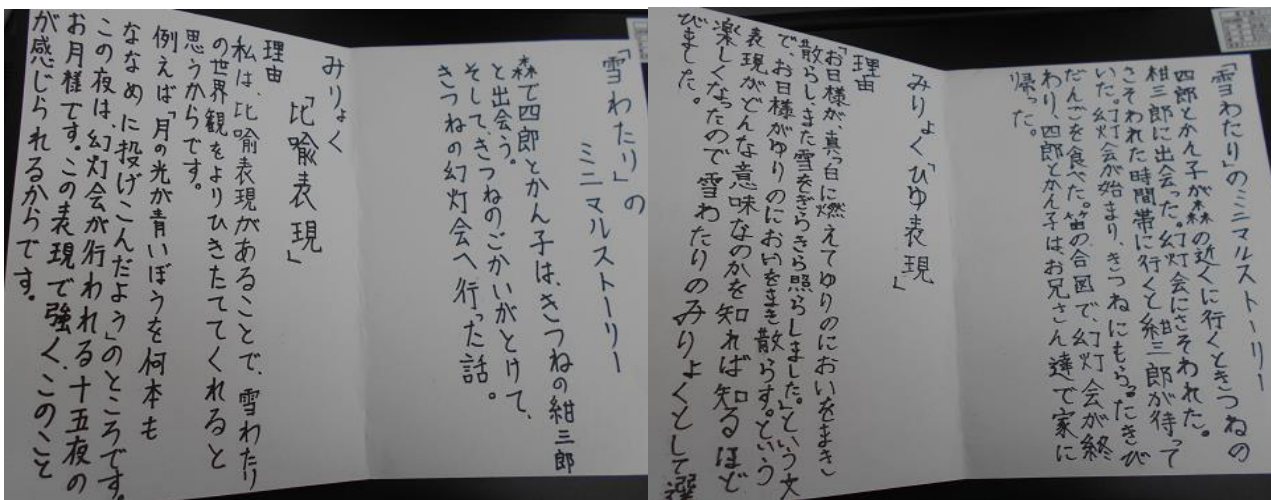 「雪わたり」の
ミニマルストーリー
森で四郎とかん子は、きつねの紺三郎
と出会う。
そして、きつねのごかいがとけて、
きつねの幻灯会へ行った話。
みりょく
「比喩表現」
理由
私は、比喩表現があることで、雪わたり
の世界観をよりひきたててくれると
思うからです。
例えば「月の光が青いぼうを何本も
ななめに投げこんだよう」のところです。
この夜は、幻灯会が行われる十五夜の
お月様です。この表現で強く、このこと
が感じられるからです。
「雪わたり」のミニマルストーリー
四郎とかん子が森の近くに行くときつねの
紺三郎に出会った。幻灯会にさそわれた。
さそわれた時間帯に行くと紺三郎が待って
いた。幻灯会が始まり、きつねにもらったきび
だんごを食べた。笛の合図で、幻灯会が終
わり、四郎とかん子は、お兄さん達で家に
帰った。
みりょく「ひゆ表現」
理由
「お日様が、真っ白に燃えてゆりのにおいをまき
散らし、また雪をぎらぎら照らしました。」という文
で、お日様がゆりのにおいをまき散らす。という
表現がどんな意味なのかを知れば知るほど
楽しくなったので雪わたりのみりょくとして選
びました。